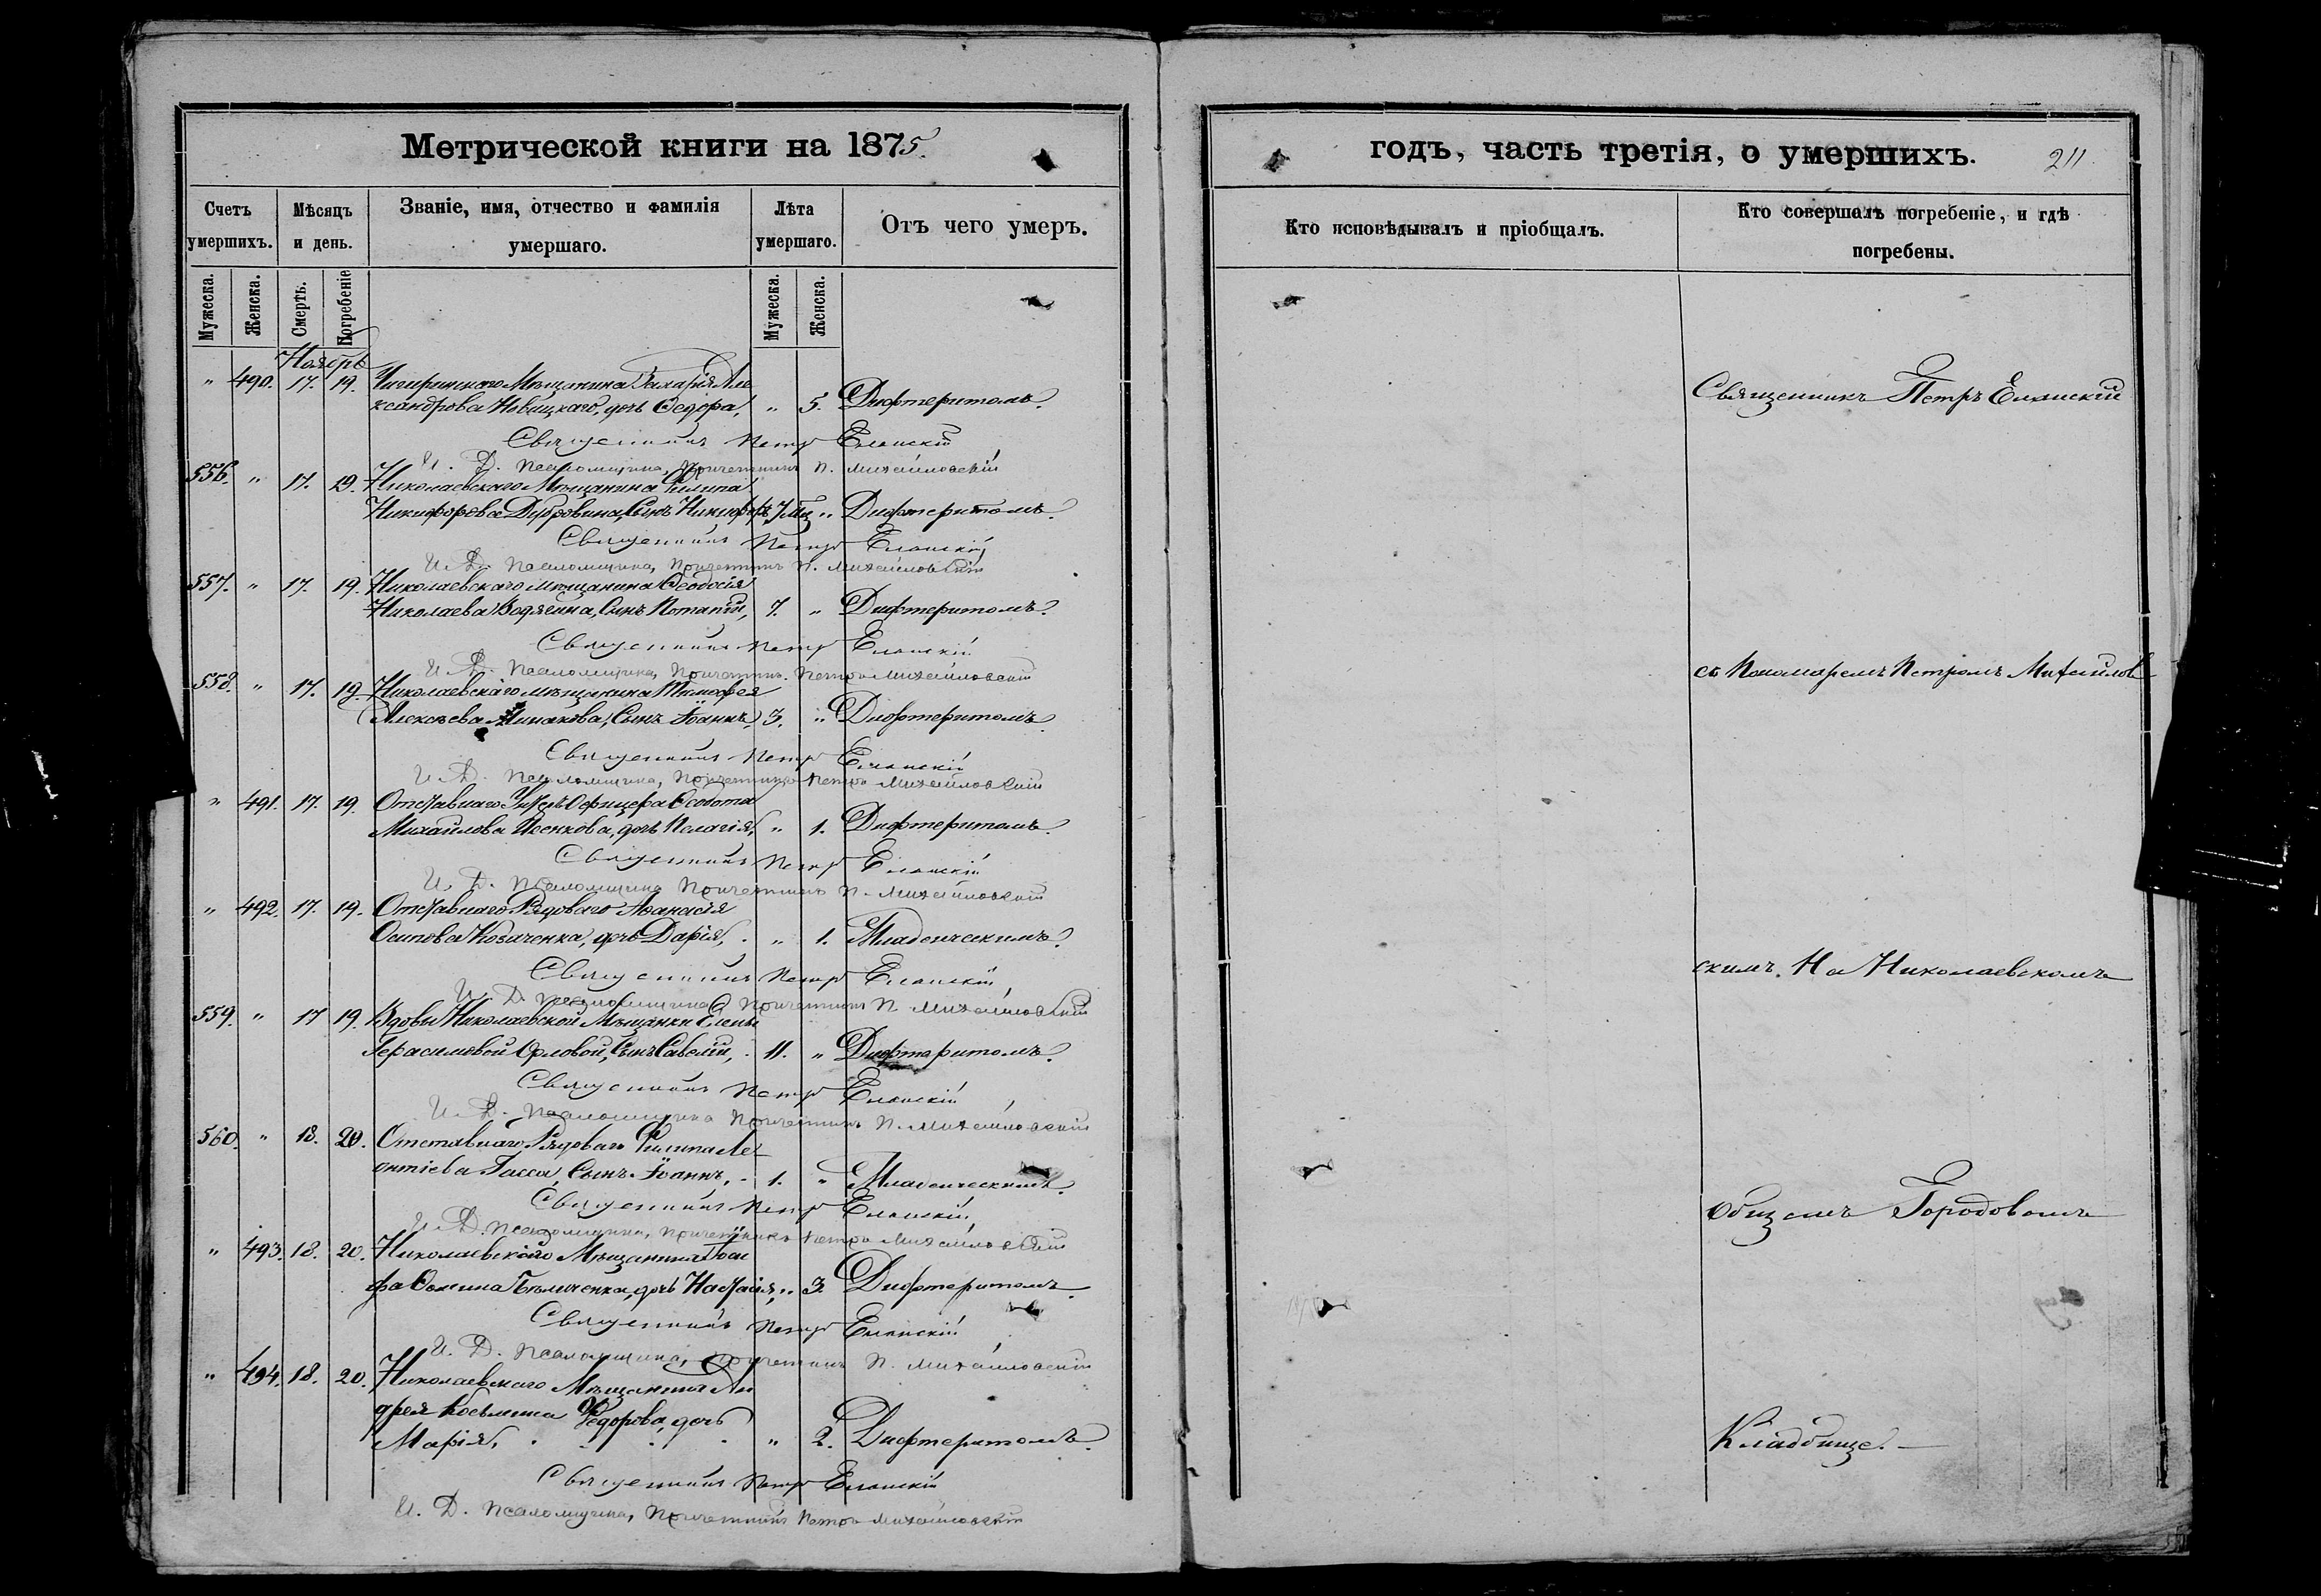 Метрической книги на 1875.
Счетъ умершихъ.
Мѣсяцъ и день.
Званіе, имя, отчество и фамилія умершаго.
Лѣта умершаго.
Отъ чего умеръ.
Мужеска. Женска. Смерть. Погребеніе Мужеска. Женска.
Ноябрь
" 490. 17. 19. Чигиринскаго Мѣщанина Захарія Але
ксандрова Новицкаго, дочь Ѳедора, " 5. Дифтеритомъ.
Священникъ Петръ Еланскій
И. Д. Псаломщика, Причетникъ П. Михайловскій
556. " 17. 19. Николаевскаго Мѣщанина Филипа
Никифорова Дубровина, Сынъ Никифоръ 7 мц " Дифтеритомъ.
Священникъ Петръ Еланскій
И. Д. Псаломщика, Причетникъ П. Михайловскій
557. " 17. 19. Николаевскаго мѣщанина Ѳеодосія
Николаева Водягина, Сынъ Потапій, 7. " Дифтеритомъ.
Священникъ Петръ Еланскій
И. Д. Псаломщика, Причетник. Петръ Михайловскій
558. " 17. 19. Николаевскаго мѣщанина Тимофея
Алексѣева Минакова, Сынъ Іоаннъ, 3. " Дифтеритомъ.
Священникъ Петръ Еланскій
И. Д. Псаломщика, Причетникъ Петръ Михайловскій
" 491. 17. 19. Отставнаго Унтеръ Офицера
Михайлова Исенкова, дочь Пелагія, " 1. Дифтеритомъ.
Священникъ Петръ Еланскій
И. Д. Псаломщика Причетникъ П. Михайловскій
" 492. 17. 19. Отставнаго Рядоваго Афанасія
Осипова Козаченка, дочь Дарія, " 1. Младенческимъ.
Священникъ Петръ Еланскій
И. Д. Псаломщика Причетникъ П. Михайловскій
559. " 17 19. Вдовы Николаевской Мѣщанки Елены
Герасимовой Орловой, Сынъ Савелій, 11. " Дифтеритомъ.
Священникъ Петръ Еланскій
И. Д. Псаломщика Причетникъ П. Михайловскій
560. " 18. 20. Отставнаго Рядоваго Филипа Ле
онтіева Гасса, Сынъ Іоаннъ, 1. " Младенческимъ.
Священникъ Петръ Еланскій
И. Д. Псаломщика, Причетникъ Петръ Михайловскій
" 493. 18. 20. Николаевскаго Мѣщанина Іоси
фа Ѳомина дочь Настасія, " 3. Дифтеритомъ.
Священникъ Петръ Еланскій
И. Д. Псаломщика, Причетникъ П. Михайловскій
" 494. 18. 20. Николаевскаго Мѣщанина Ан
дрея Косьмина Ѳедорова, дочь
Марія, " 2. Дифтеритомъ.
Священникъ Петръ Еланскій
И. Д. Псаломщика, Причетникъ Петръ Михайловскій
годъ, часть третія, о умершихъ. 211
Кто исповѣдывалъ и пріобщалъ.
Кто совершалъ погребеніе, и гдѣ погребены.
Священникъ Петръ Еланскій
съ Пономаремъ Петромъ Михайлов
скимъ. На Николаевскомъ
общемъ Городовомъ
Кладбище.